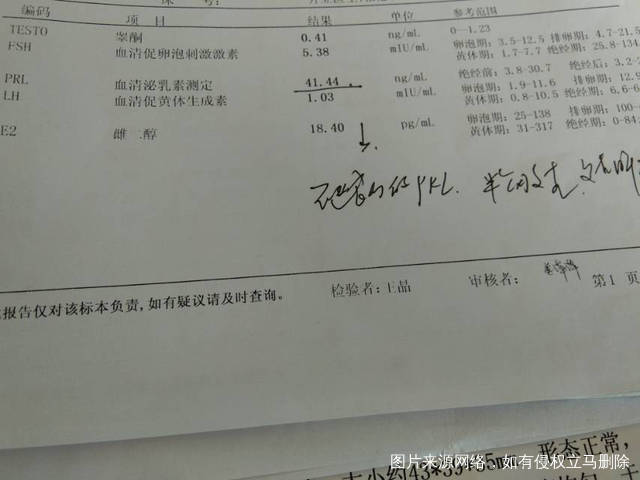 编码 项 目 结果 单位 参考范围
TESTO 睾酮 0.41 ng/mL 0—1.23
FSH 血清促卵泡刺激激素 5.38 mIU/mL 卵泡期: 3.5-12.5 排卵期: 4.7-21.5
黄体期: 1.7-7.7 绝经期: 25.8-134.
PRL 血清泌乳素测定 41.44 ng/mL 绝经前: 3.8-30.7 绝经后: 3.2-2
LH 血清促黄体生成素 1.03 mIU/mL 卵泡期: 1.9-11.6 排卵期: 12.9
黄体期: 0.8-10.5 绝经期: 6.6-6
E2 雌二醇 18.40 pg/mL 卵泡期: 25-138 排卵期: 100-
黄体期: 31-317 绝经期: 0-84.
PRL.
报告仅对该标本负责,如有疑议请及时查询。 检验者: 王晶 审核者: 第1 页
大小约43*39*35mm 形态正常,
图片来源网络，如有侵权立马删除